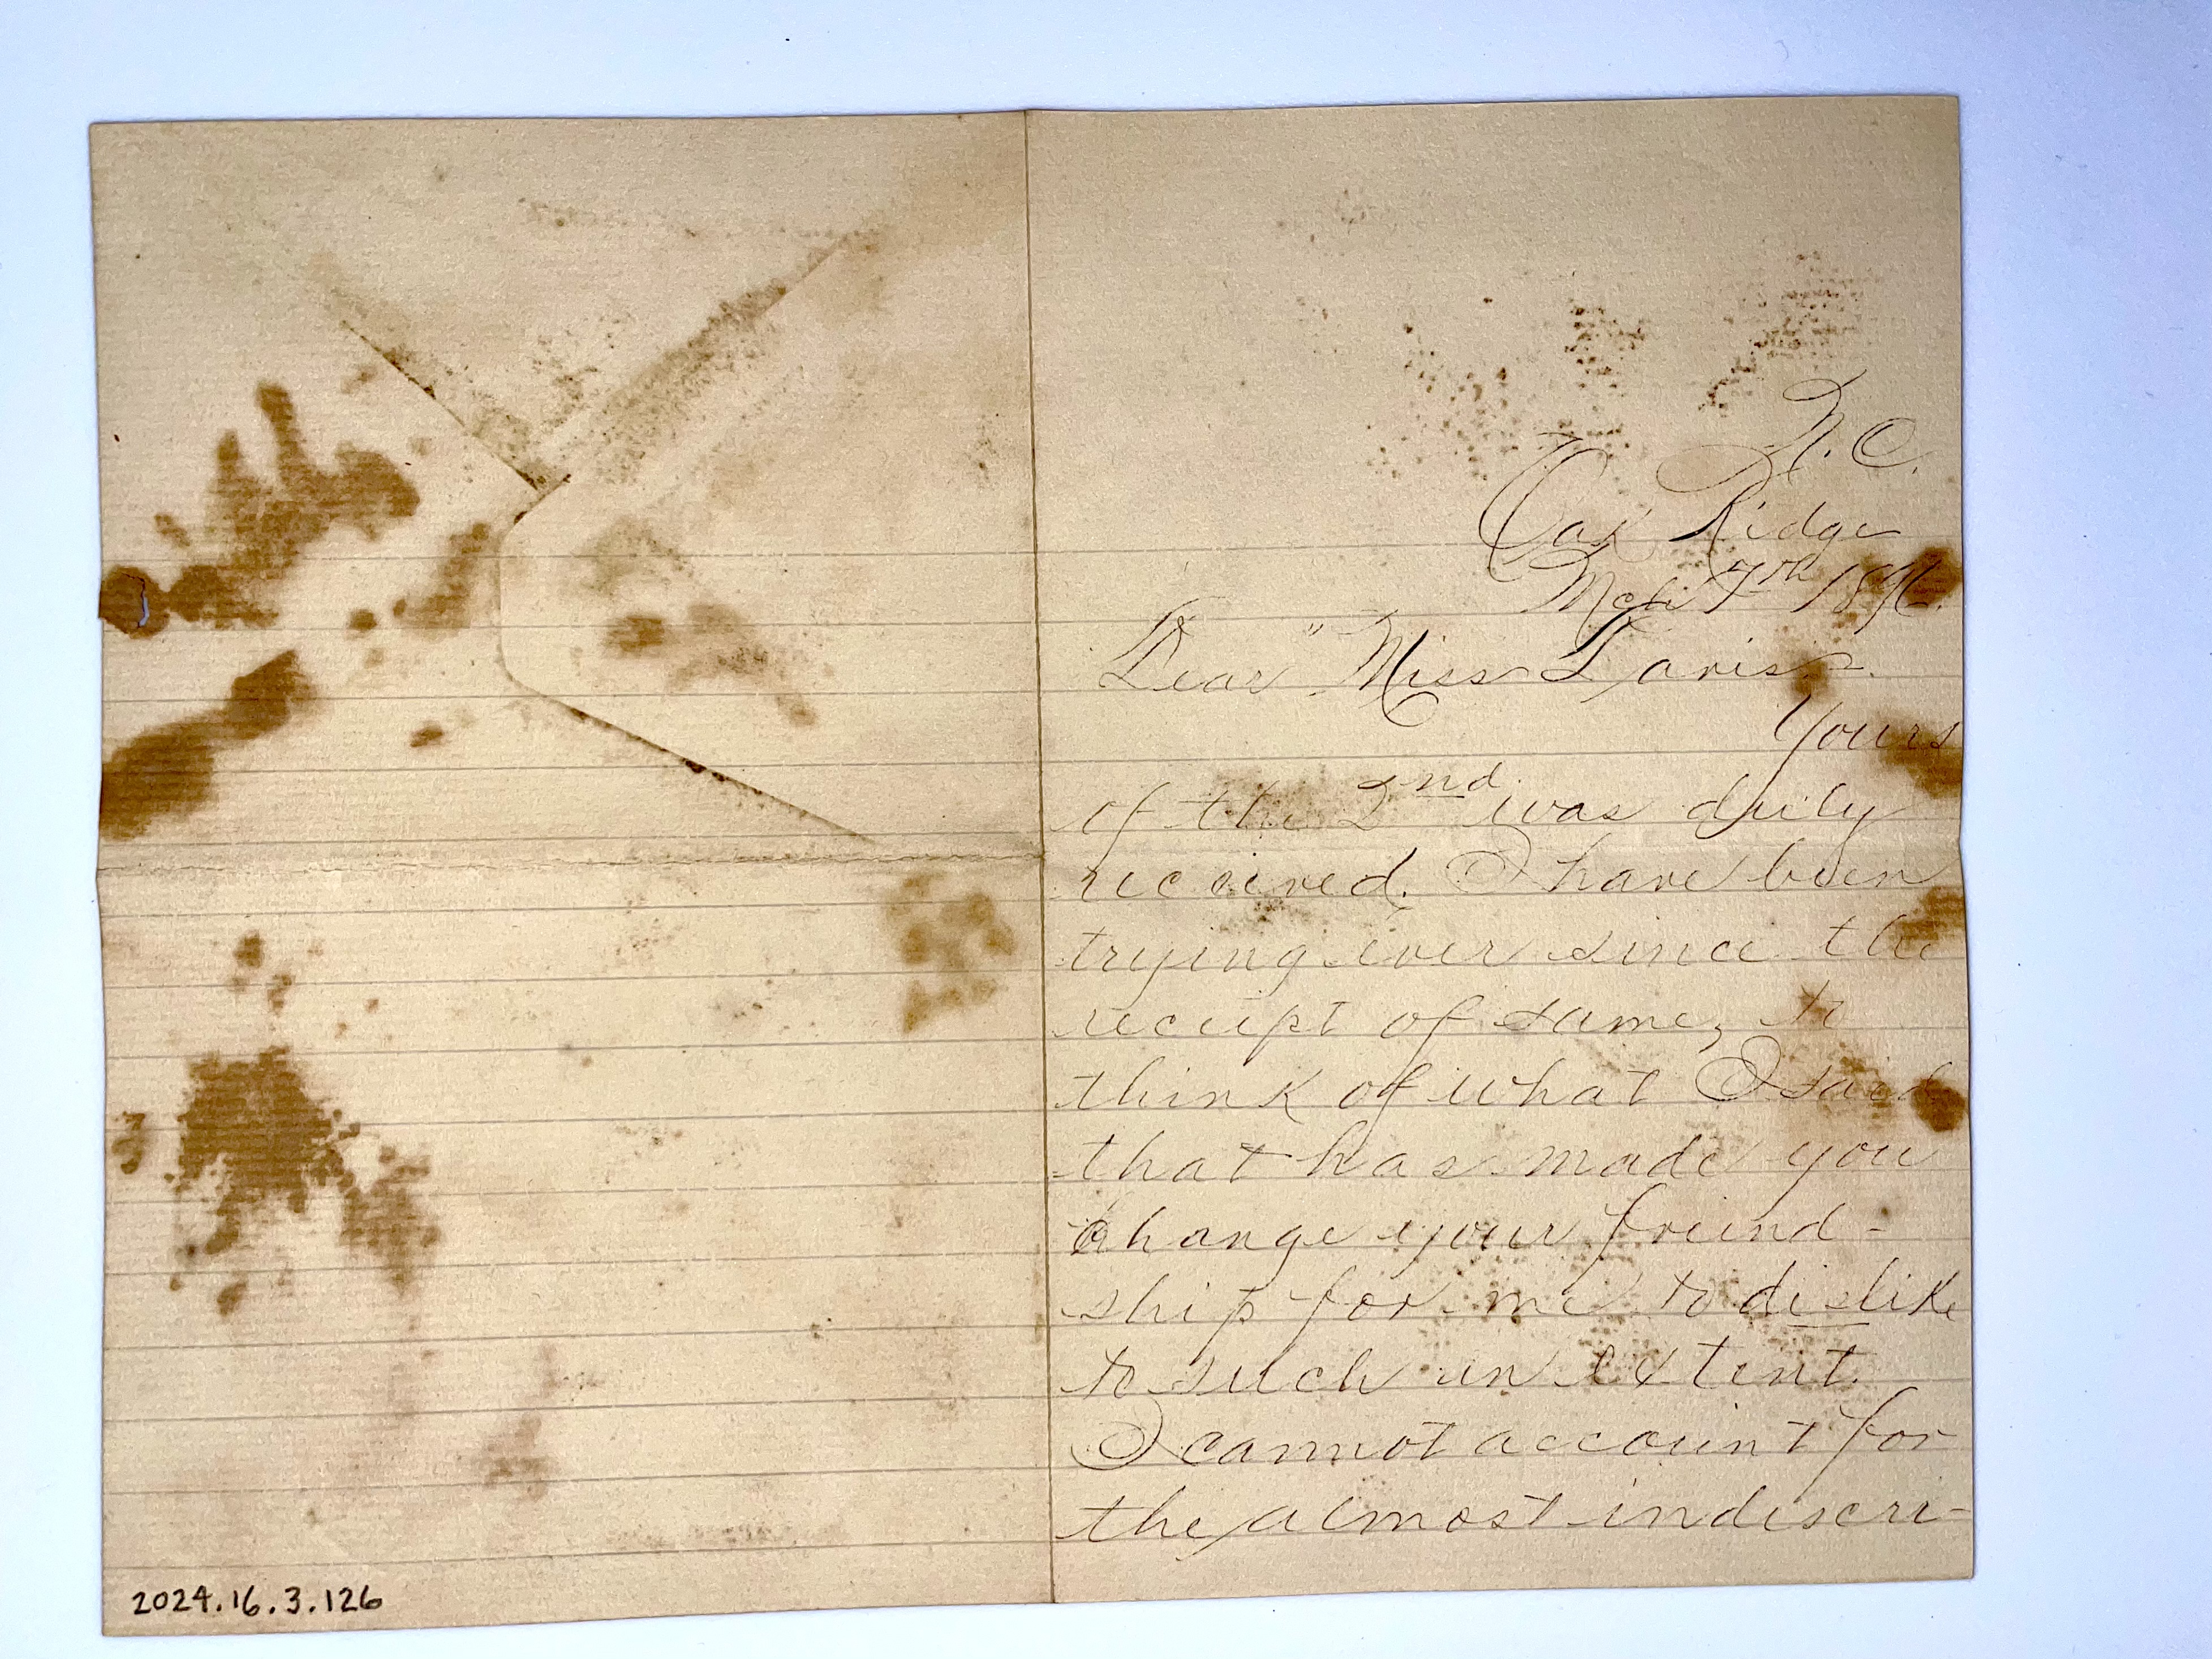 N. C.
Oak Ridge
Mch 7th 1896.
Dear "Miss Davis".
Yours
of the 2nd was duly
received. I have been
trying ever since the
receipt of same, to
think of what I said
that has made you
change your friend-
ship for me to dislike
to such an extent.
I cannot account for
the almost indiscri-
2024.16.3.126